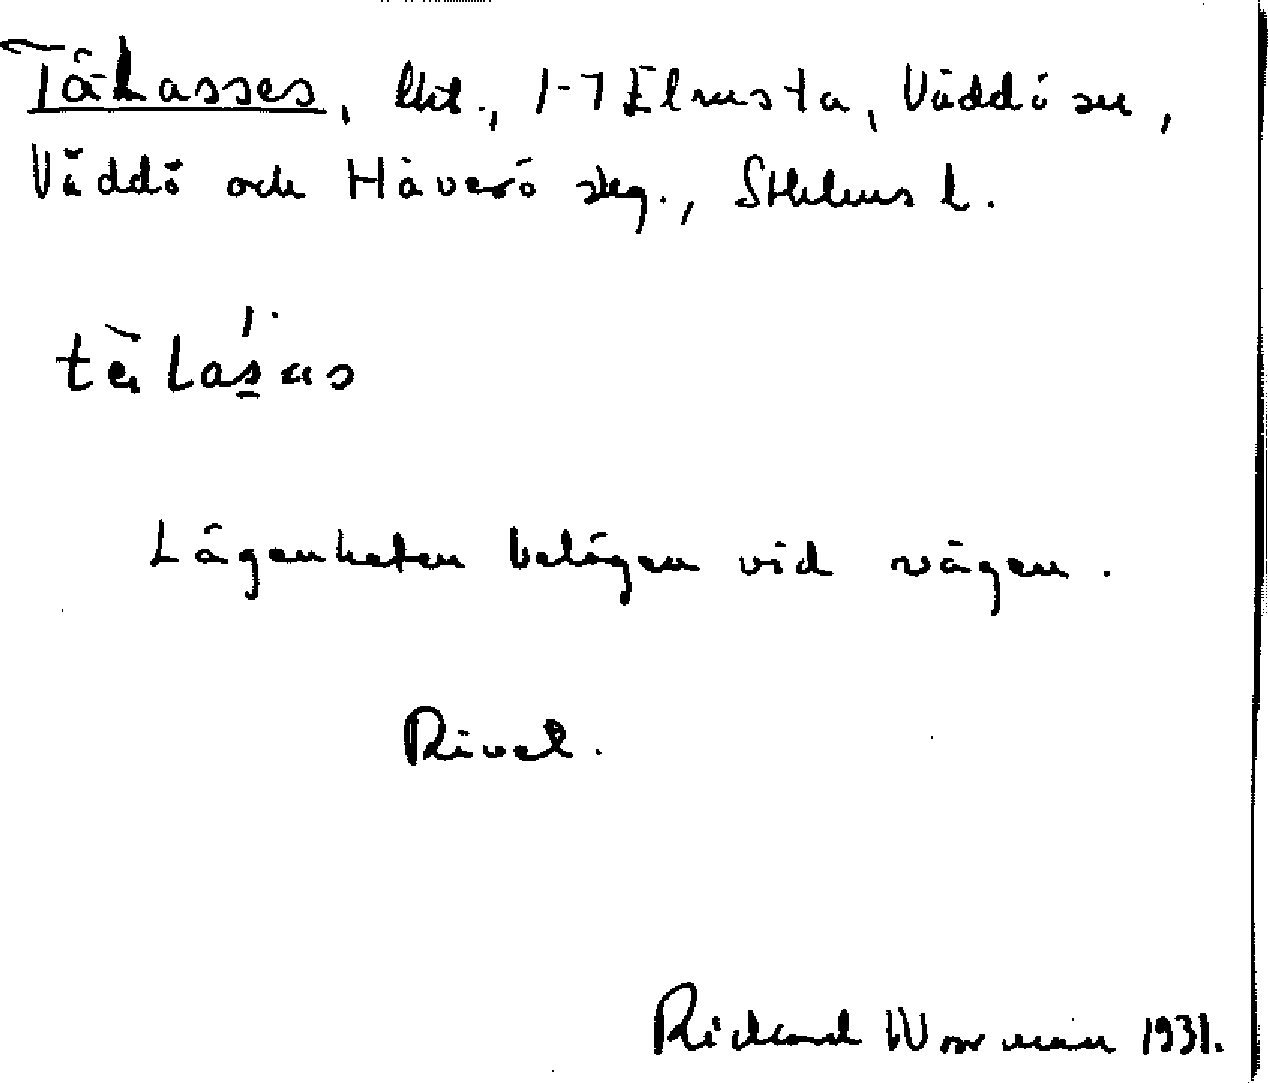 Tåkasses, lht., 1-7 Elmsta, Väddö sn,
Väddö och Häverö skg., Sthlms l.
Lägenheten belägen vid vägen.
Richard Worman 1931.